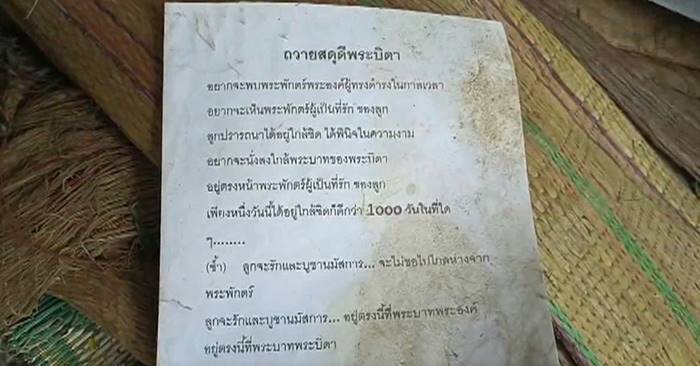 ถวายสดุดีพระบิดา
อยากจะพบพระพักตร์พระองค์ผู้ทรงดำรงในกาลเวลา
อยากจะเห็นพระพักตร์ผู้เป็นที่รัก ของลูก
ลูกปรารถนาได้อยู่ใกล้ชิด ได้พินิจในความงาม
อยากจะนั่งลงใกล้พระบาทของพระบิดา
อยู่ตรงหน้าพระพักตร์ผู้เป็นที่รัก ของลูก
เพียงหนึ่งวันนี้ได้อยู่ใกล้ชิดก็ดีกว่า 1000 วันในที่ใด
ๆ........
(ซ้ำ) ลูกจะรักและบูชานมัสการ... จะไม่ขอไปไกลห่างจาก
พระพักตร์
ลูกจะรักและบูชานมัสการ... อยู่ตรงนี้ที่พระบาทพระองค์
อยู่ตรงนี้ที่พระบาทพระบิดา